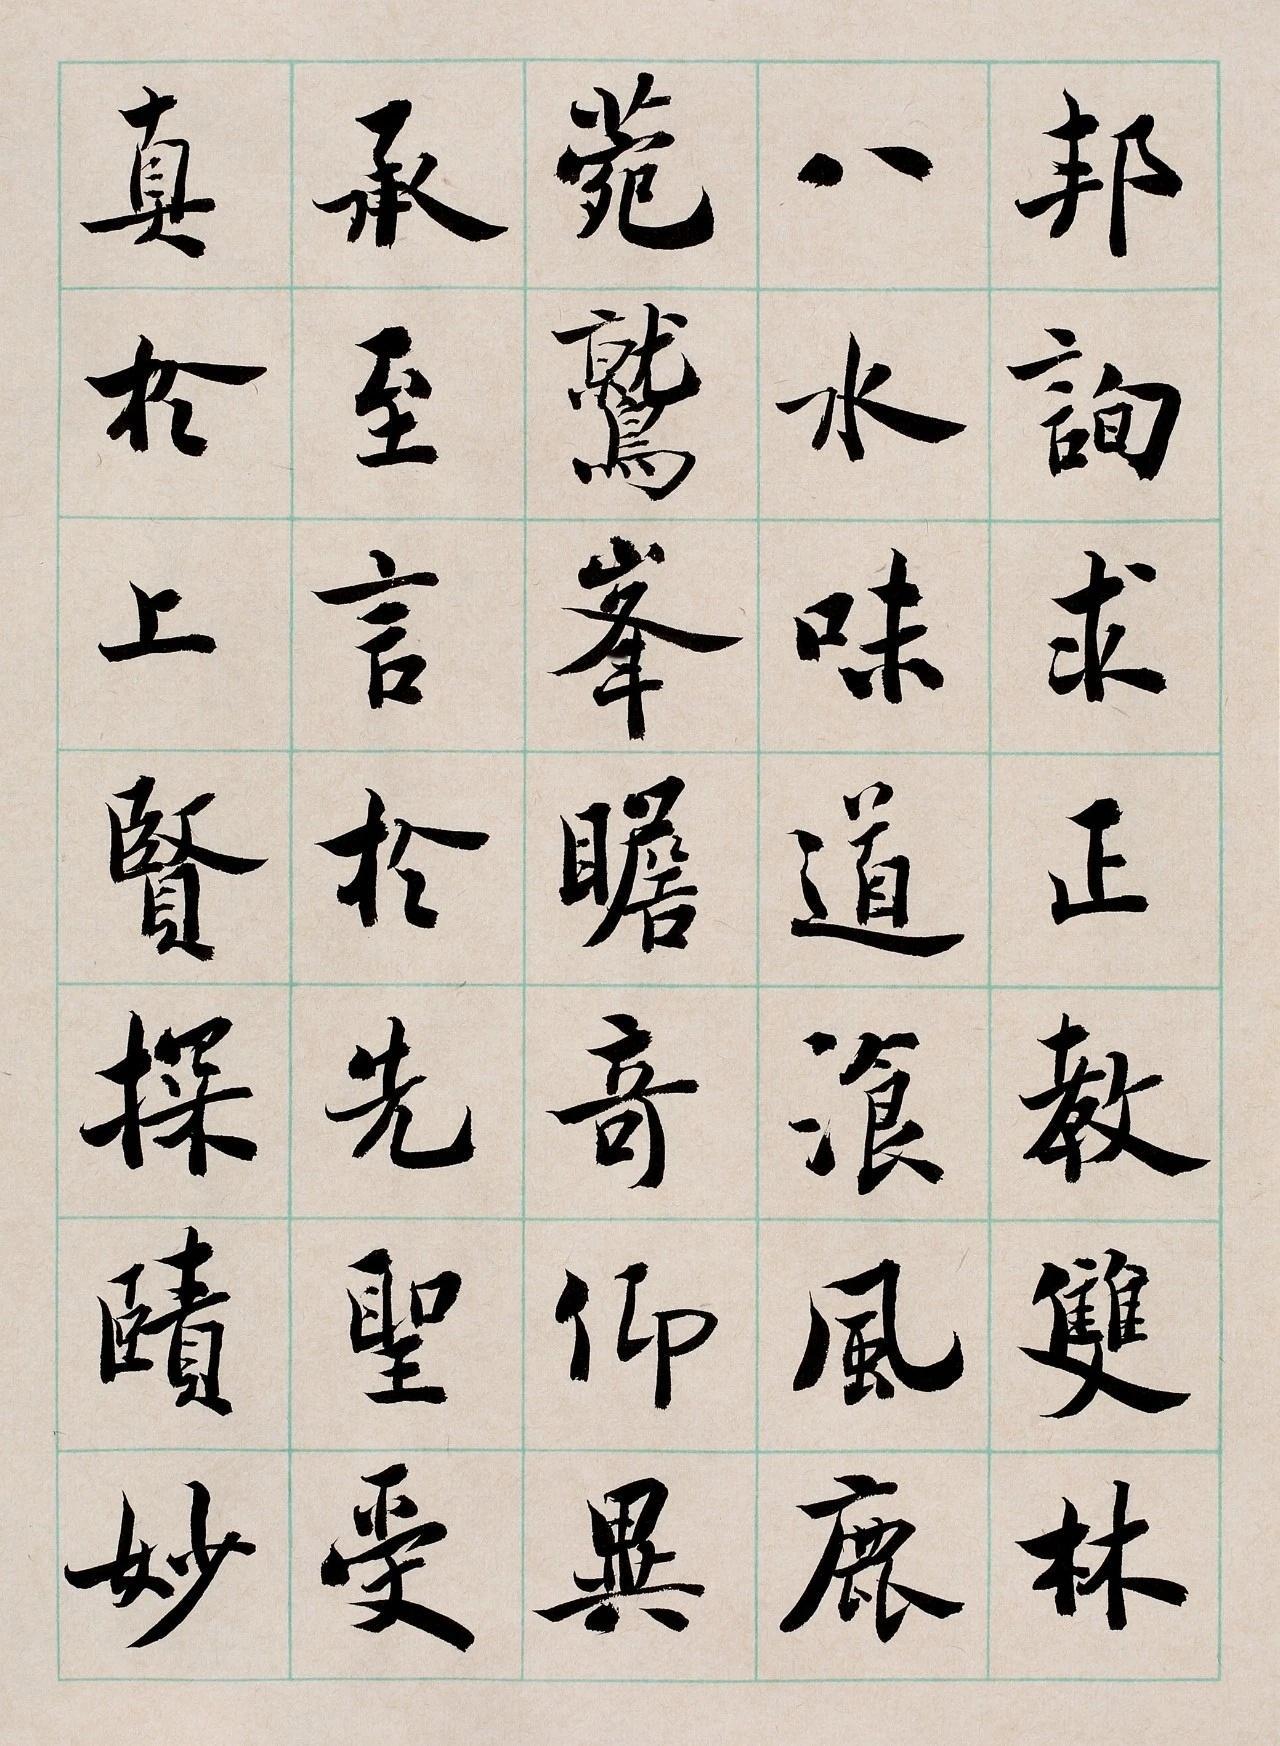 邦詢求正教雙林
八水味道飡風鹿
菀鷲峯瞻奇仰異
承至言於先聖受
真教於上賢探賾妙